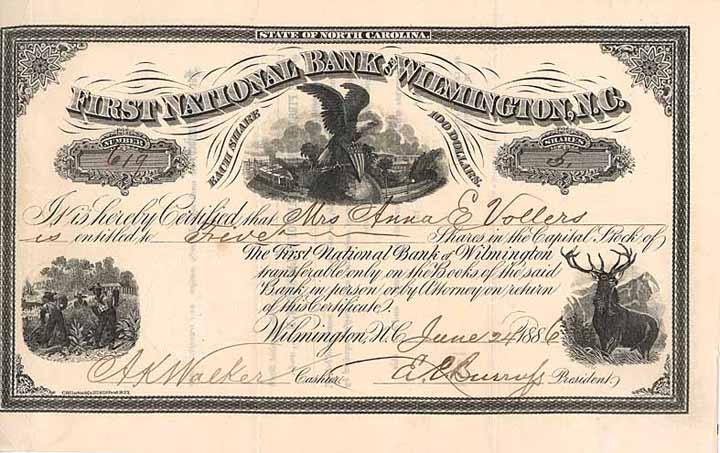 STATE OF NORTH CAROLINA.
FIRST NATIONAL BANK OF WILMINGTON, N.C.
EACH SHARE 100 DOLLARS.
NUMBER
619
SHARES
5
It is hereby Certified, that Mrs Anna E Vollers
is entitled to Five Shares in the Capital Stock of
The First National Bank of Wilmington
transferable only on the Books of the said
Bank, in person or by Attorney on return
of this Certificate.
Wilmington, N.C. June 24 1886
A K Walker Cashier E E Burruss President